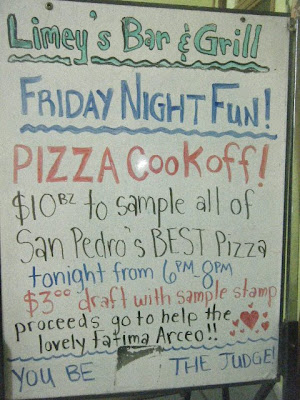 Limey's Bar & Grill
FRIDAY NIGHT FUN!
PIZZA COOKOFF!
$10 BZ to sample all of
San Pedro's BEST Pizza
tonight from 6PM 8PM
$3.00 draft with sample stamp
proceeds go to help the
lovely Fatima Arceo!!
YOU BE THE JUDGE!